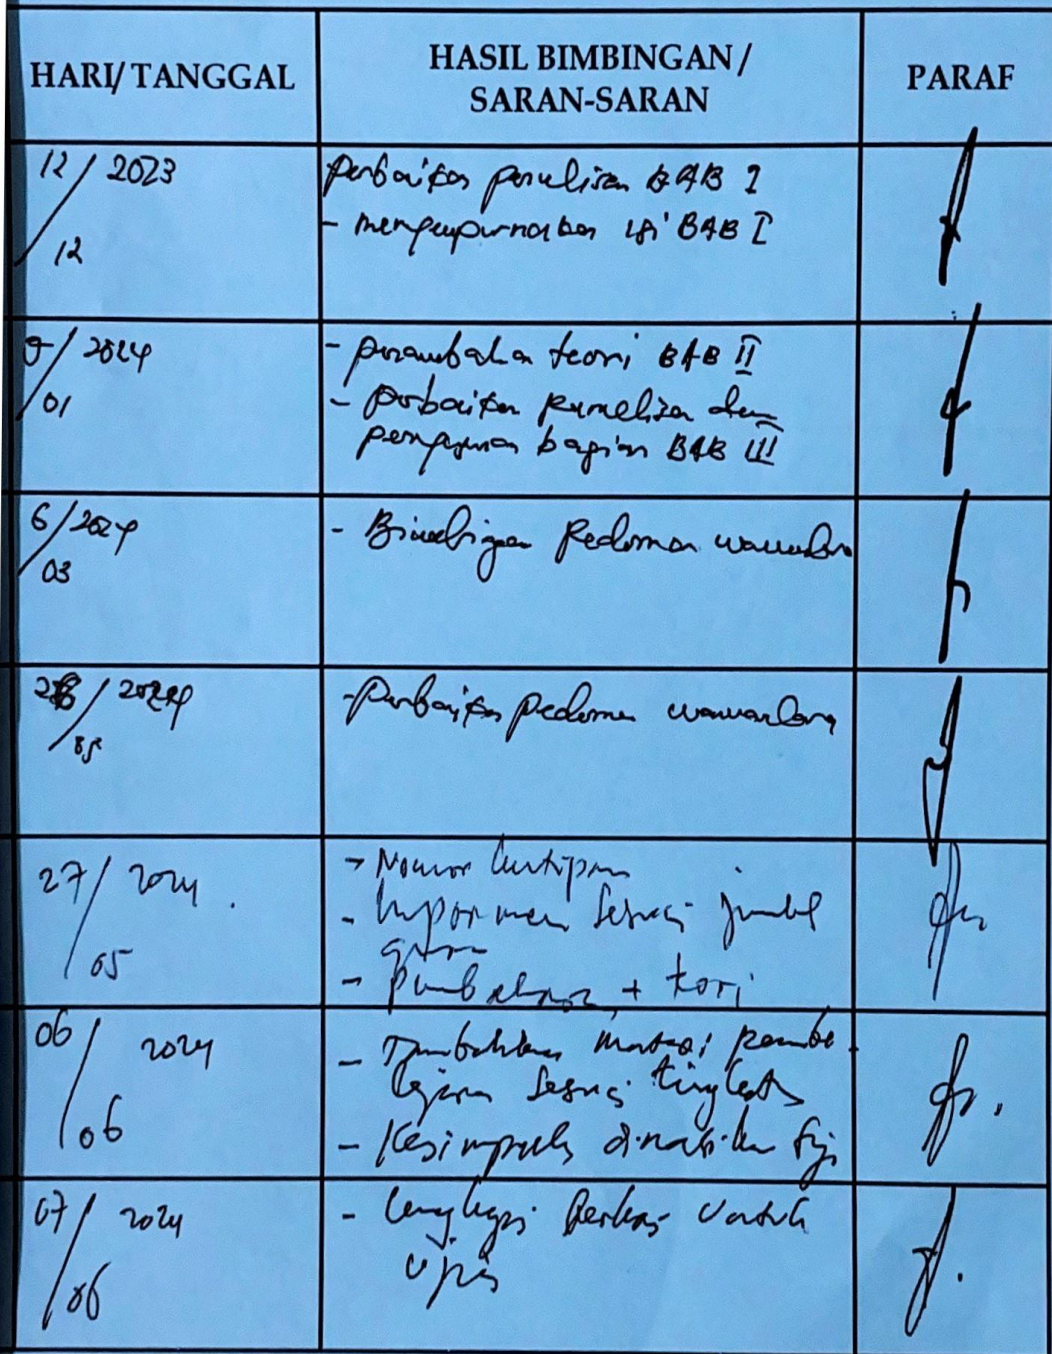 HARI/TANGGAL
HASIL BIMBINGAN/
SARAN-SARAN
PARAF
12/12 2023
Perbaikan penulisan BAB I
- menyempurnakan isi BAB I
9/01 2024
- penambahan teori BAB II
- Perbaikan penulisan dan
penyusunan bagian BAB III
6/03 2024
- Bimbingan Pedoman wawancara
/05 2024
- Perbaikan Pedoman wawancara
27/05 2024
- Nomor kutipan
- Informan sesuai jumlah
guru
- Pembahasan + teori
06/06 2024
- Tambahkan materi pembe
lajaran sesuai tingkatan
- Kesimpulan
07/06 2024
- Lengkapi berkas untuk
ujian